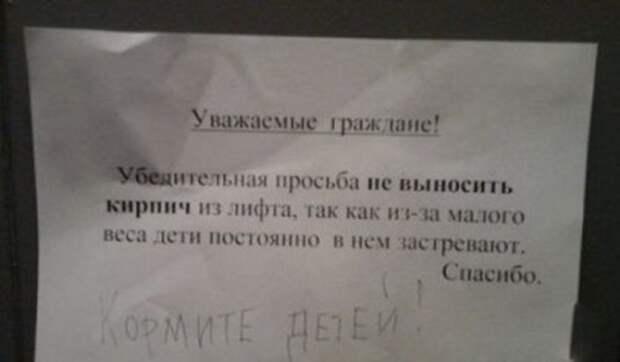 Уважаемые граждане!
Убедительная просьба не выносить
кирпич из лифта, так как из-за малого
веса дети постоянно в нем застревают.
Спасибо.
КОРМИТЕ ДЕТЕЙ!